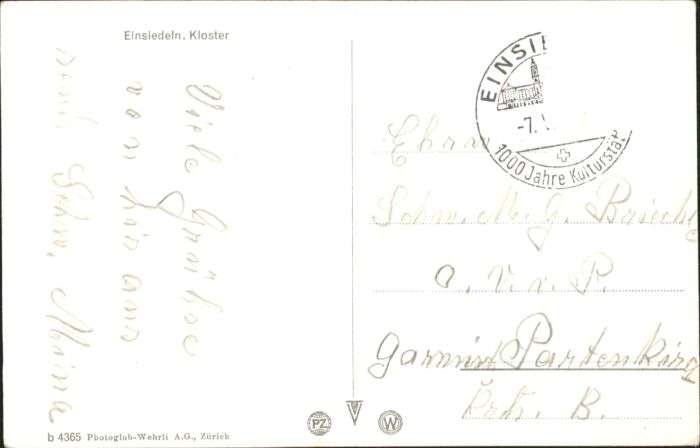 Einsiedeln, Kloster
Viele Grüße
von hier aus
Schw. Maina
EINSIE
-7.
1000 Jahre Kulturstät
Ehrw.
Schw. M. G.
a. v. v. P.
Garmisch Partenkirch
B.
b 4365 Photoglob-Wehrli A.G., Zürich
PZ
W